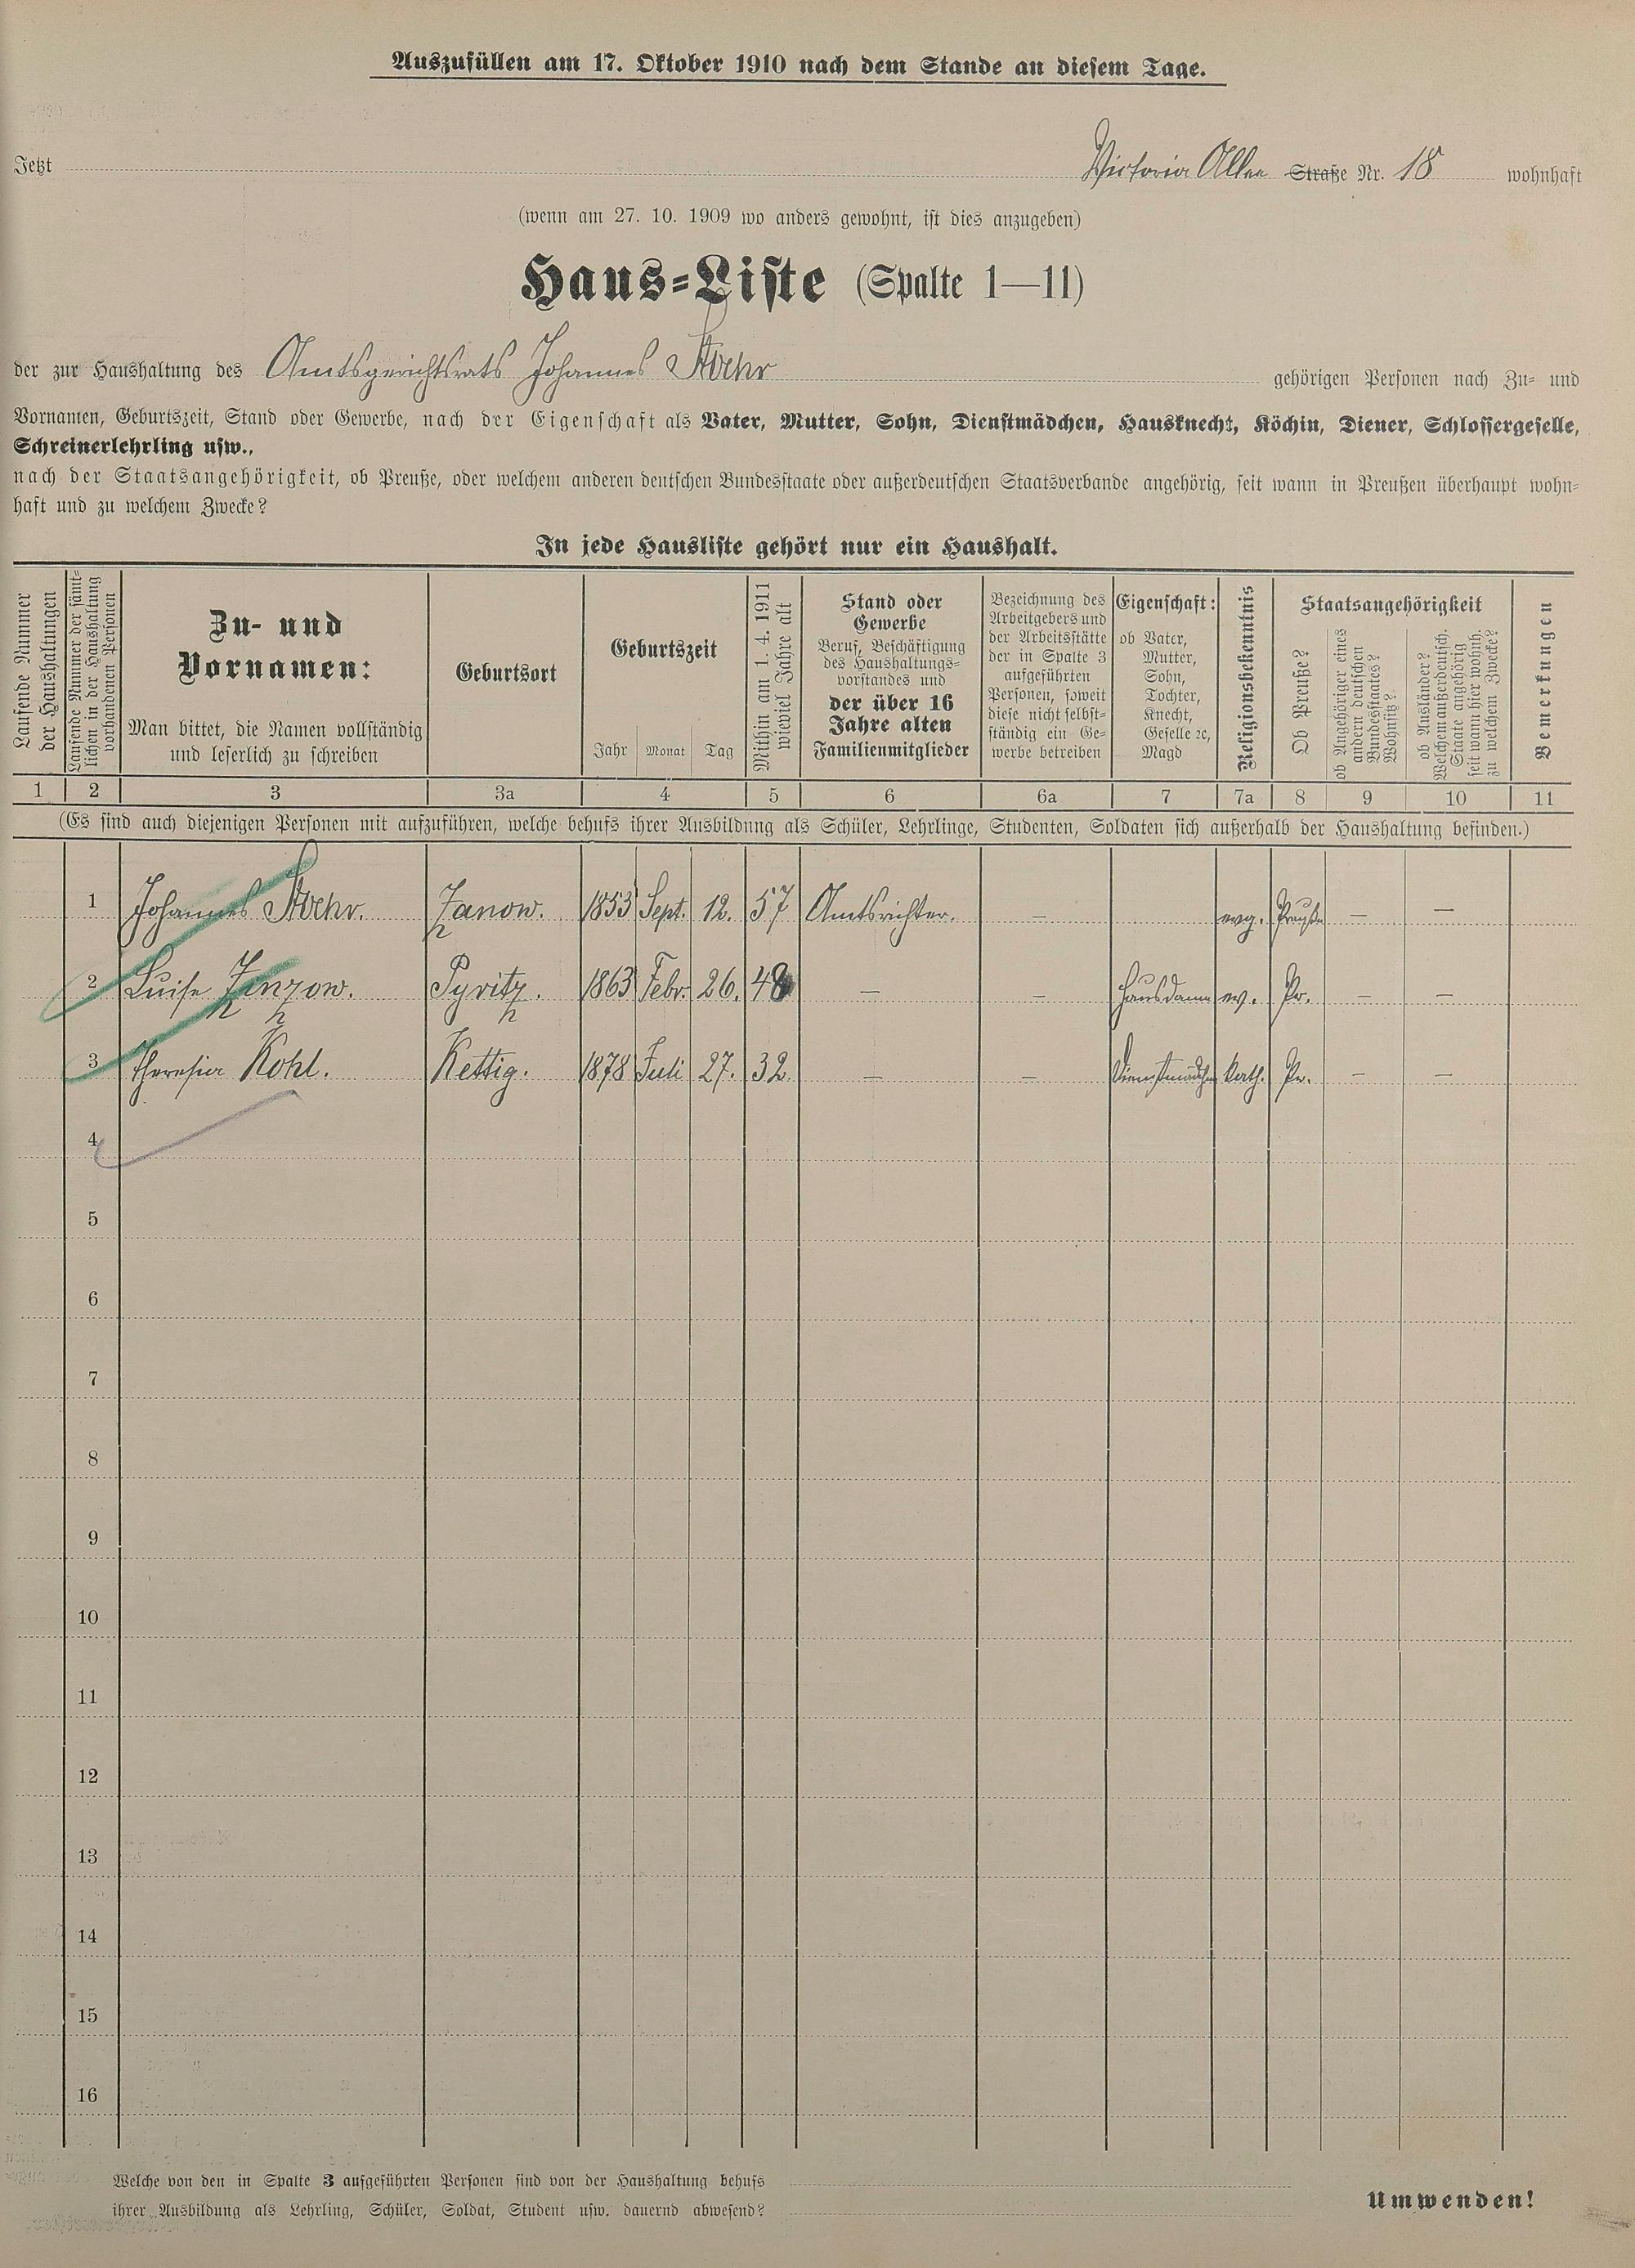 Auszufüllen am 17. Oktober 1910 nach dem Stande an diesem Tage.
Jetzt Victoria Allee Straße Nr. 18 wohnhaft
(wenn am 27. 10. 1909 wo anders gewohnt, ist dies anzugeben)
Haus-Liste (Spalte 1—11)
der zur Haushaltung des Amtsgerichtsrats Johannes Stoehr gehörigen Personen nach Zu- und
Vornamen, Geburtszeit, Stand oder Gewerbe, nach der Eigenschaft als Vater, Mutter, Sohn, Dienstmädchen, Hausknecht, Köchin, Diener, Schlossergeselle,
Schreinerlehrling usw.,
nach der Staatsangehörigkeit, ob Preuße, oder welchem anderen deutschen Bundesstaate oder außerdeutschen Staatsverbande angehörig, seit wann in Preußen überhaupt wohn-
haft und zu welchem Zwecke?
In jede Hausliste gehört nur ein Haushalt.
Laufende Nummer
der Haushaltungen
Laufende Nummer der sämt-
lichen in der Haushaltung
vorhandenen Personen
Zu- und
Vornamen:
Man bittet, die Namen vollständig
und leserlich zu schreiben
Geburtsort
Geburtszeit
Jahr Monat Tag
Mithin am 1. 4. 1911
wieviel Jahre alt
Stand oder
Gewerbe
Beruf, Beschäftigung
des Haushaltungs-
vorstandes und
der über 16
Jahre alten
Familienmitglieder
Bezeichnung des
Arbeitgebers und
der Arbeitsstätte
der in Spalte 3
aufgeführten
Personen, soweit
diese nicht selbst-
ständig ein Ge-
werbe betreiben
Eigenschaft:
ob Vater,
Mutter,
Sohn,
Tochter,
Knecht,
Geselle ec,
Magd
Religionsbekenntnis
Staatsangehörigkeit
Ob Preuße?
ob Angehöriger eines
andern deutschen
Bundesstaates?
Wohnsitz?
ob Ausländer?
Welchem außerdeutsch.
Staate angehörig
seit wann hier wohnh.
zu welchem Zwecke?
Bemerkungen
1 2 3 3a 4 5 6 6a 7 7a 8 9 10 11
(Es sind auch diejenigen Personen mit aufzuführen, welche behufs ihrer Ausbildung als Schüler, Lehrlinge, Studenten, Soldaten sich außerhalb der Haushaltung befinden.)
1 Johannes Stoehr. Zanow. 1853 Sept. 12. 57 Amtsrichter. — evg. Preuße — —
2 Luise Zenzow. Pyritz. 1863 Febr. 26. 48 — — Hausdame ev. Pr. — —
3 Theresia Kohl. Kettig. 1878 Juli 27. 32. — — Dienstmädchen kath. Pr. — —
4
5
6
7
8
9
10
11
12
13
14
15
16
Welche von den in Spalte 3 aufgeführten Personen sind von der Haushaltung behufs
ihrer Ausbildung als Lehrling, Schüler, Soldat, Student usw. dauernd abwesend?
Umwenden!